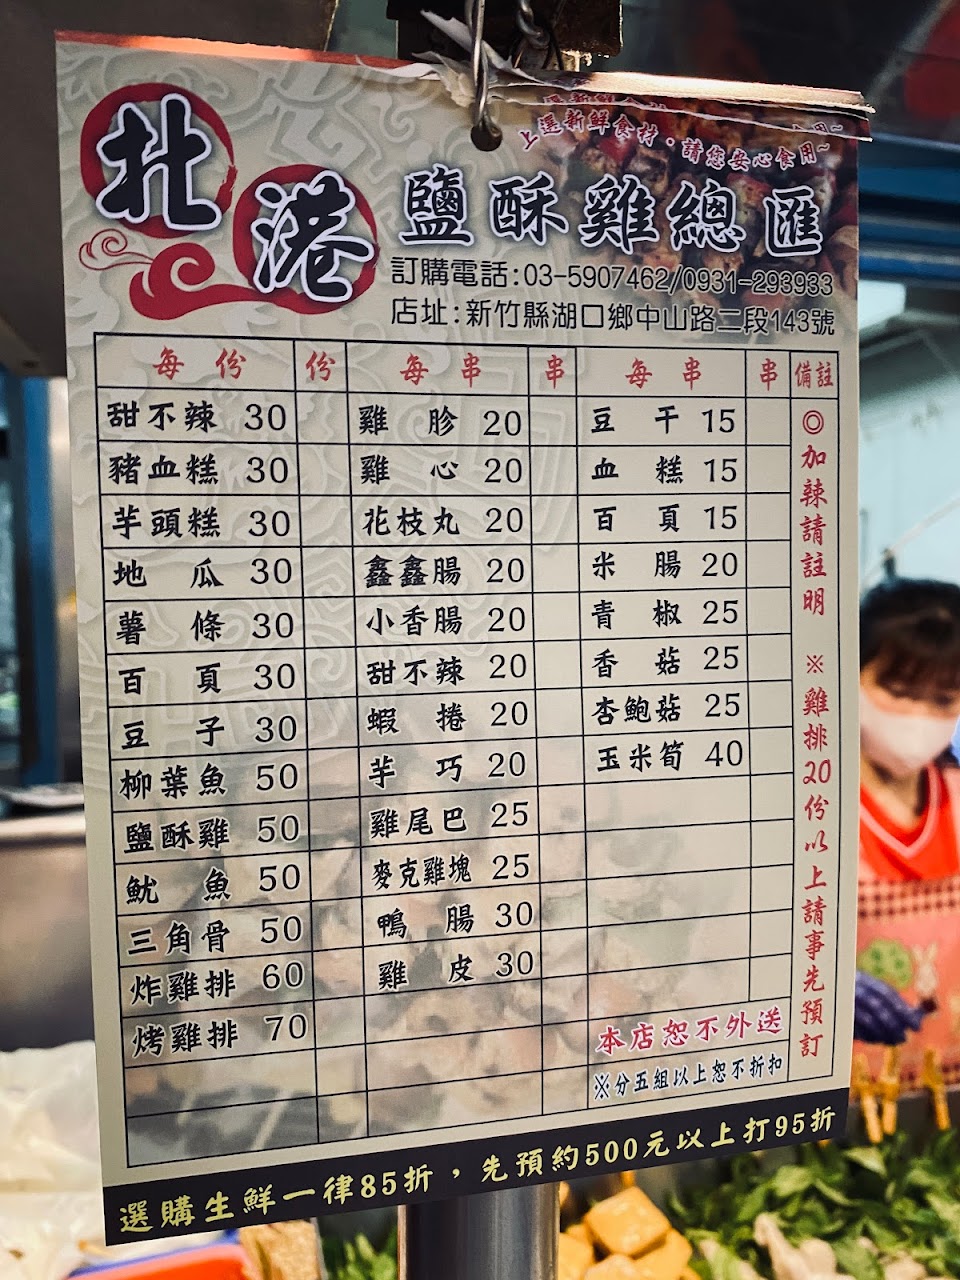 上選新鮮食材，請您安心食用~
北港
鹽酥雞總匯
訂購電話:03-5907462/0931-293933
店址:新竹縣湖口鄉中山路二段143號
每份 份 每串 串 每串 串 備註
甜不辣 30 雞胗 20 豆干 15
豬血糕 30 雞心 20 血糕 15
芋頭糕 30 花枝丸 20 百頁 15
地瓜 30 鑫鑫腸 20 米腸 20
薯條 30 小香腸 20 青椒 25
百頁 30 甜不辣 20 香菇 25
豆子 30 蝦捲 20 杏鮑菇 25
柳葉魚 50 芋巧 20 玉米筍 40
鹽酥雞 50 雞尾巴 25
魷魚 50 麥克雞塊 25
三角骨 50 鴨腸 30
炸雞排 60 雞皮 30
烤雞排 70
◎加辣請註明 ※雞排20份以上請事先預訂
本店恕不外送
※分五組以上恕不折扣
選購生鮮一律85折，先預約500元以上打95折